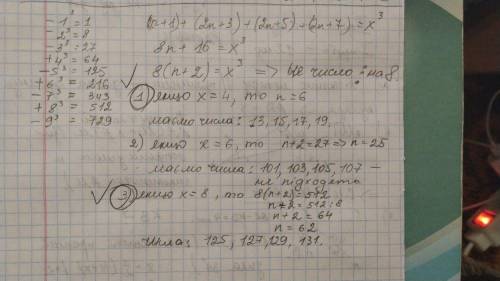 - 1³ = 1
- 2³ = 8
- 3³ = 27
+ 4³ = 64
- 5³ = 125
+ 6³ = 216
- 7³ = 343
+ 8³ = 512
- 9³ = 729
(2n+1) + (2n+3) + (2n+5) + (2n+7) = x³
8n + 16 = x³
8(n+2) = x³ => це число ⋮ на 8
✓ 1) якщо x = 4, то n = 6
маємо числа: 13, 15, 17, 19.
2) якщо x = 6, то n+2 = 27 => n = 25
маємо числа: 101, 103, 105, 107 –
не підходять
✓ 3) якщо x = 8, то 8(n+2) = 512
n+2 = 512 : 8
n+2 = 64
n = 62
числа: 125, 127, 129, 131.